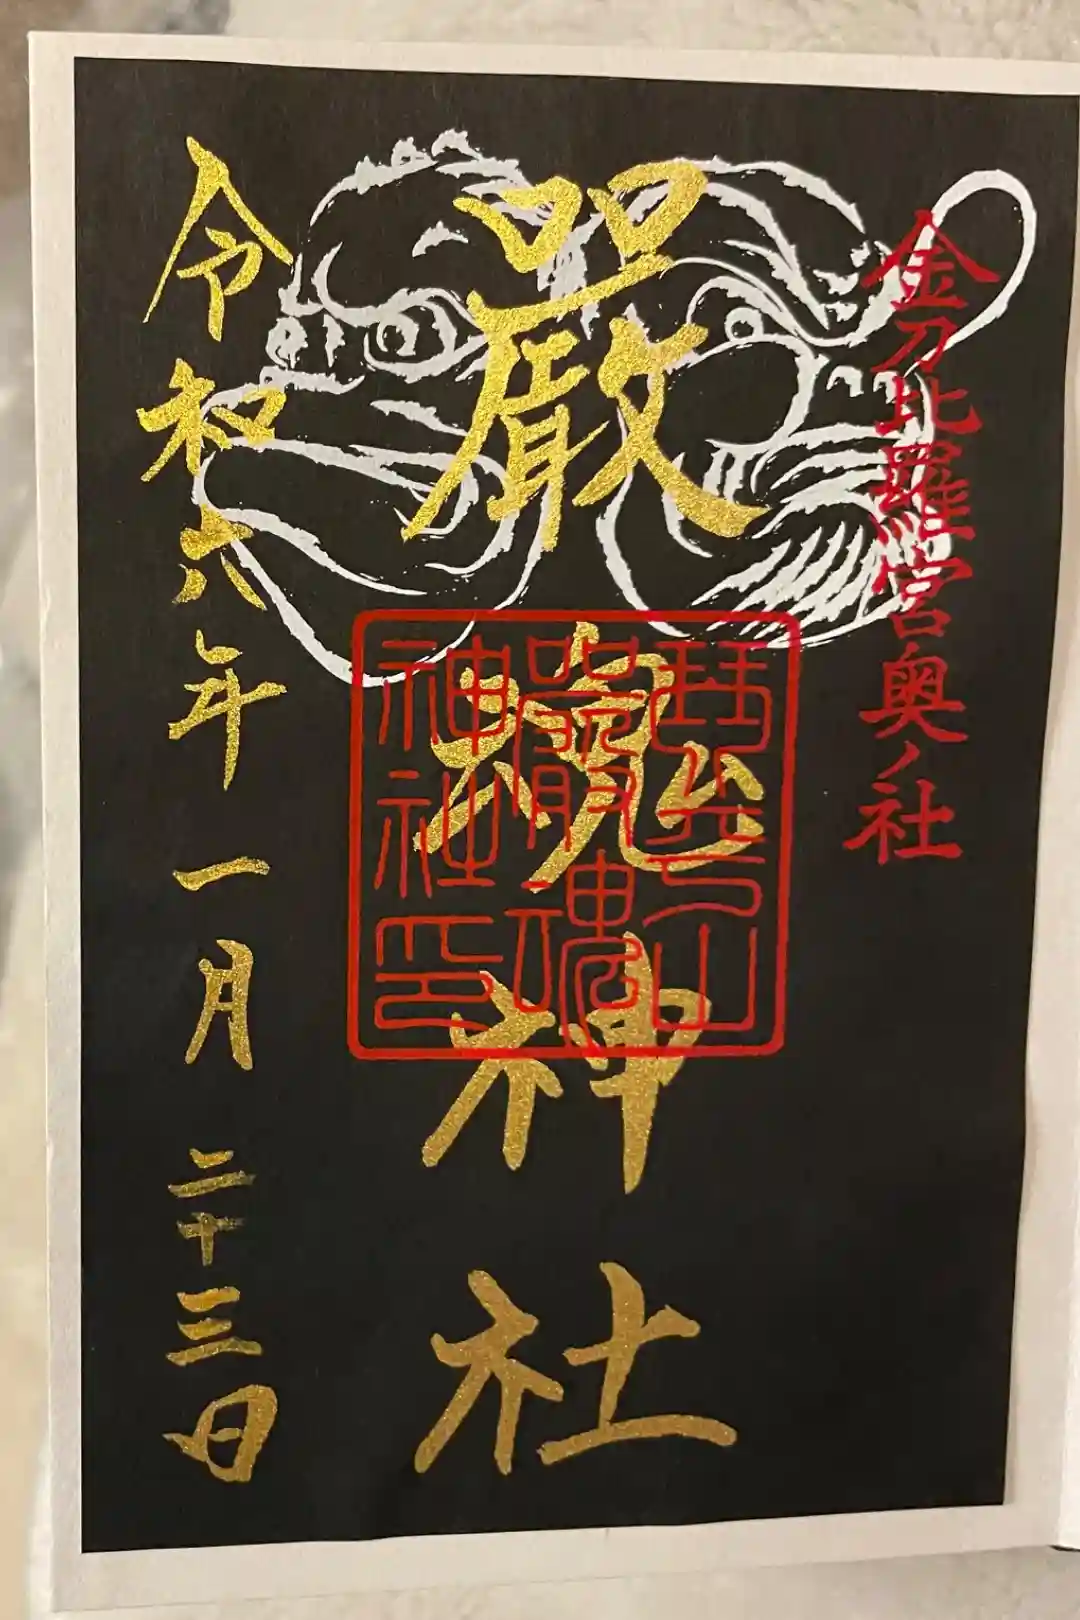 金刀比羅宮奥ノ社
嚴魂神社
琴平山
嚴魂
神社印
令和六年一月二十三日